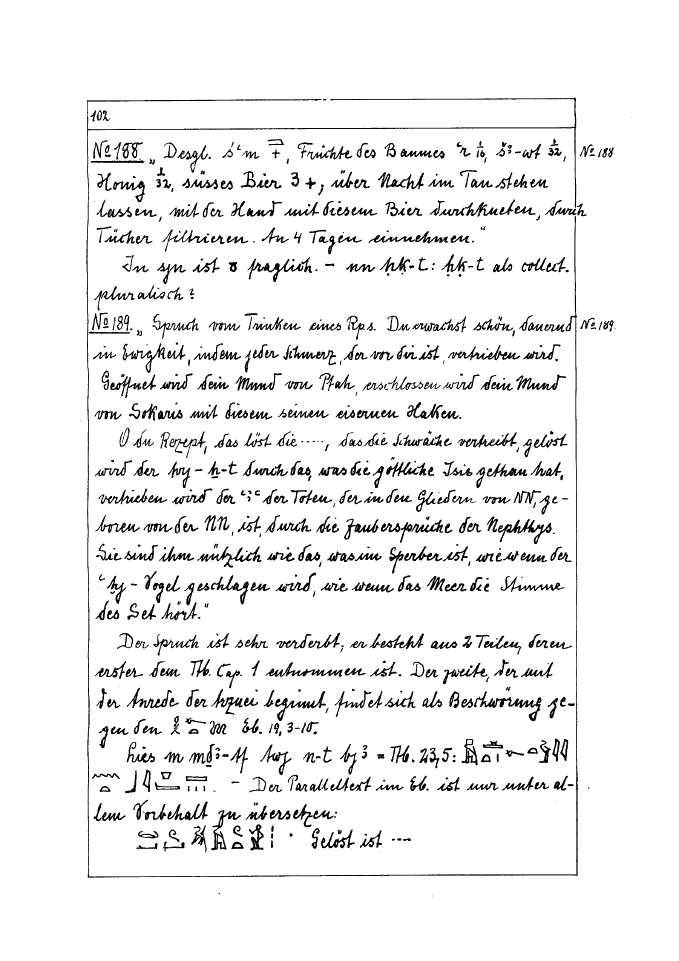 102
No 188 „ Desgl. sʿm , Früchte des Baumes ʿr 1/16, šꜣ-wt 1/32, No 188
Honig 1/32, süsses Bier 3 +; über Nacht im Tau stehen
lassen, mit der Hand mit diesem Bier durchkneten, durch
Tücher filtrieren. An 4 Tagen einnehmen.“
In syn ist fraglich. – nn ḥḳ-t: ḥḳ-t als collect.
pluralisch?
No 189. „ Spruch vom Trinken eines Rps. Du erwachst schön, dauernd No 189.
in Ewigkeit, indem jeder Schmerz, der vor dir ist, vertrieben wird.
Geöffnet wird dein Mund von Ptah, erschlossen wird dein Mund
von Sokaris mit diesem seinen eisernen Haken.
O du Rezept, das löst die ....., das die Schwäche vertreibt, gelöst
wird der durch das, was die göttliche Isis gethan hat,
vertrieben wird der ʿꜣʿ der Toten, der in den Gliedern von NN, ge-
boren von der NN, ist, durch die Zaubersprüche der Nephthys.
Sie sind ihm nützlich wie das, was im Sperber ist, wie wenn der
ʿḫy – Vogel geschlagen wird, wie wenn das Meer die Stimme
des Set hört.“
Der Spruch ist sehr verderbt; er besteht aus 2 Teilen, deren
erster dem Tb. Cap. 1 entnommen ist. Der zweite, der mit
der Anrede der beginnt, findet sich als Beschwörung ge-
gen den Eb. 19, 3–10.
Lies m n-t bjꜣ = Tb. 23,5:
– Der Paralleltext im Eb. ist nur unter al-
lem Vorbehalt zu übersetzen:
Gelöst ist ....